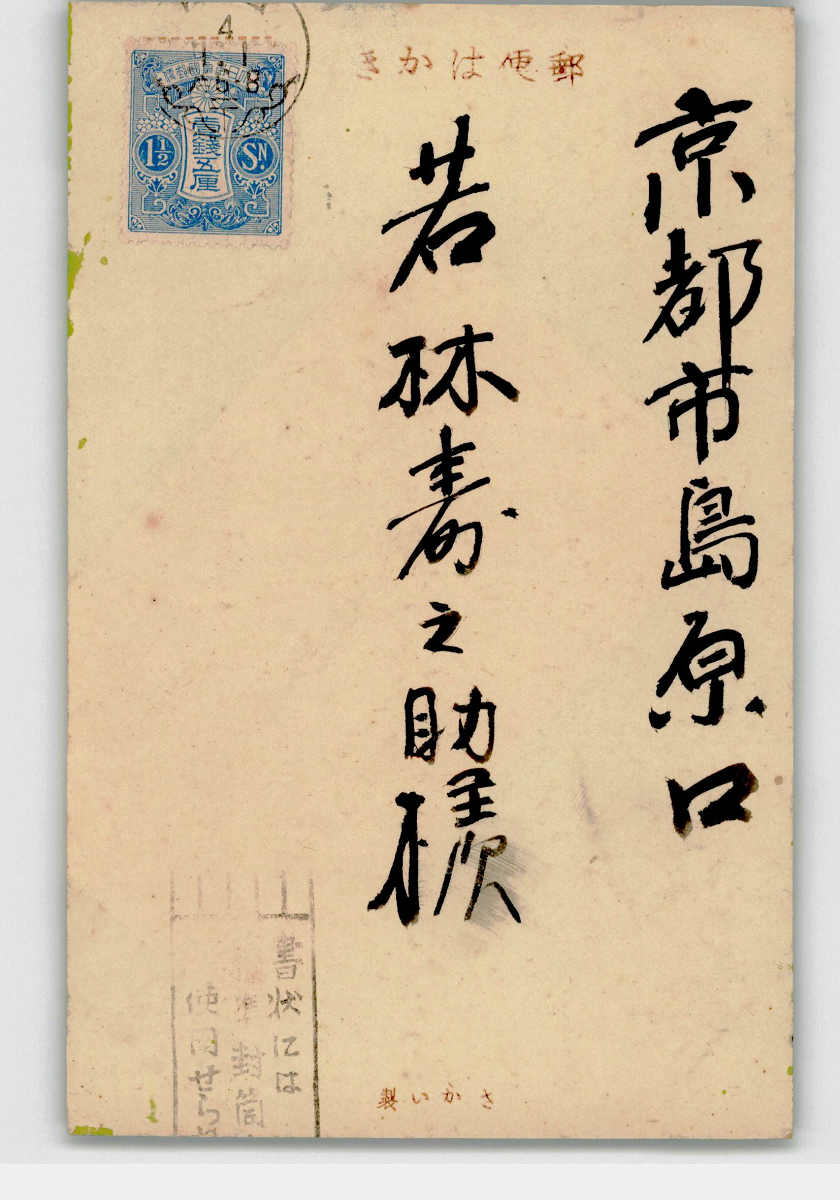 郵便はかき
京都市島原口
若林寿之助様
壱銭五厘
1½
Sn.
4
1.1
書状には
封筒
使用せら
さかい製